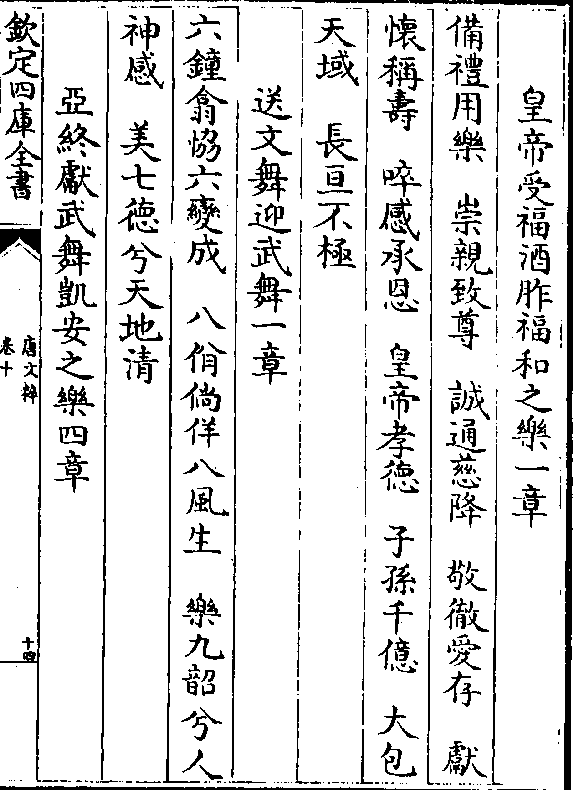 皇帝受福酒胙福和之樂一章
備禮用樂　崇親致尊　誠通慈降　敬徹愛存　獻
懷稱壽　啐感承恩　皇帝孝德　子孫千億　大包
天域　長亘不極
送文舞迎武舞一章
六鐘翕恊六變成　八佾倘佯八風生　樂九韶兮人
神感　美七德兮天地清
亞終獻武舞凱安之樂四章
欽定四庫全書
唐文粹
卷十
十四